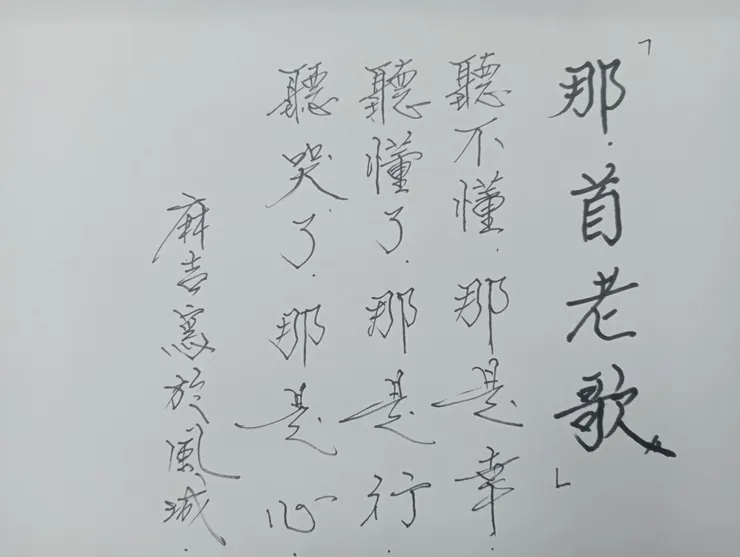 「那首老歌」
聽不懂.那是幸
聽懂了.那是行
聽哭了.那是心
麻吉寫於風城.